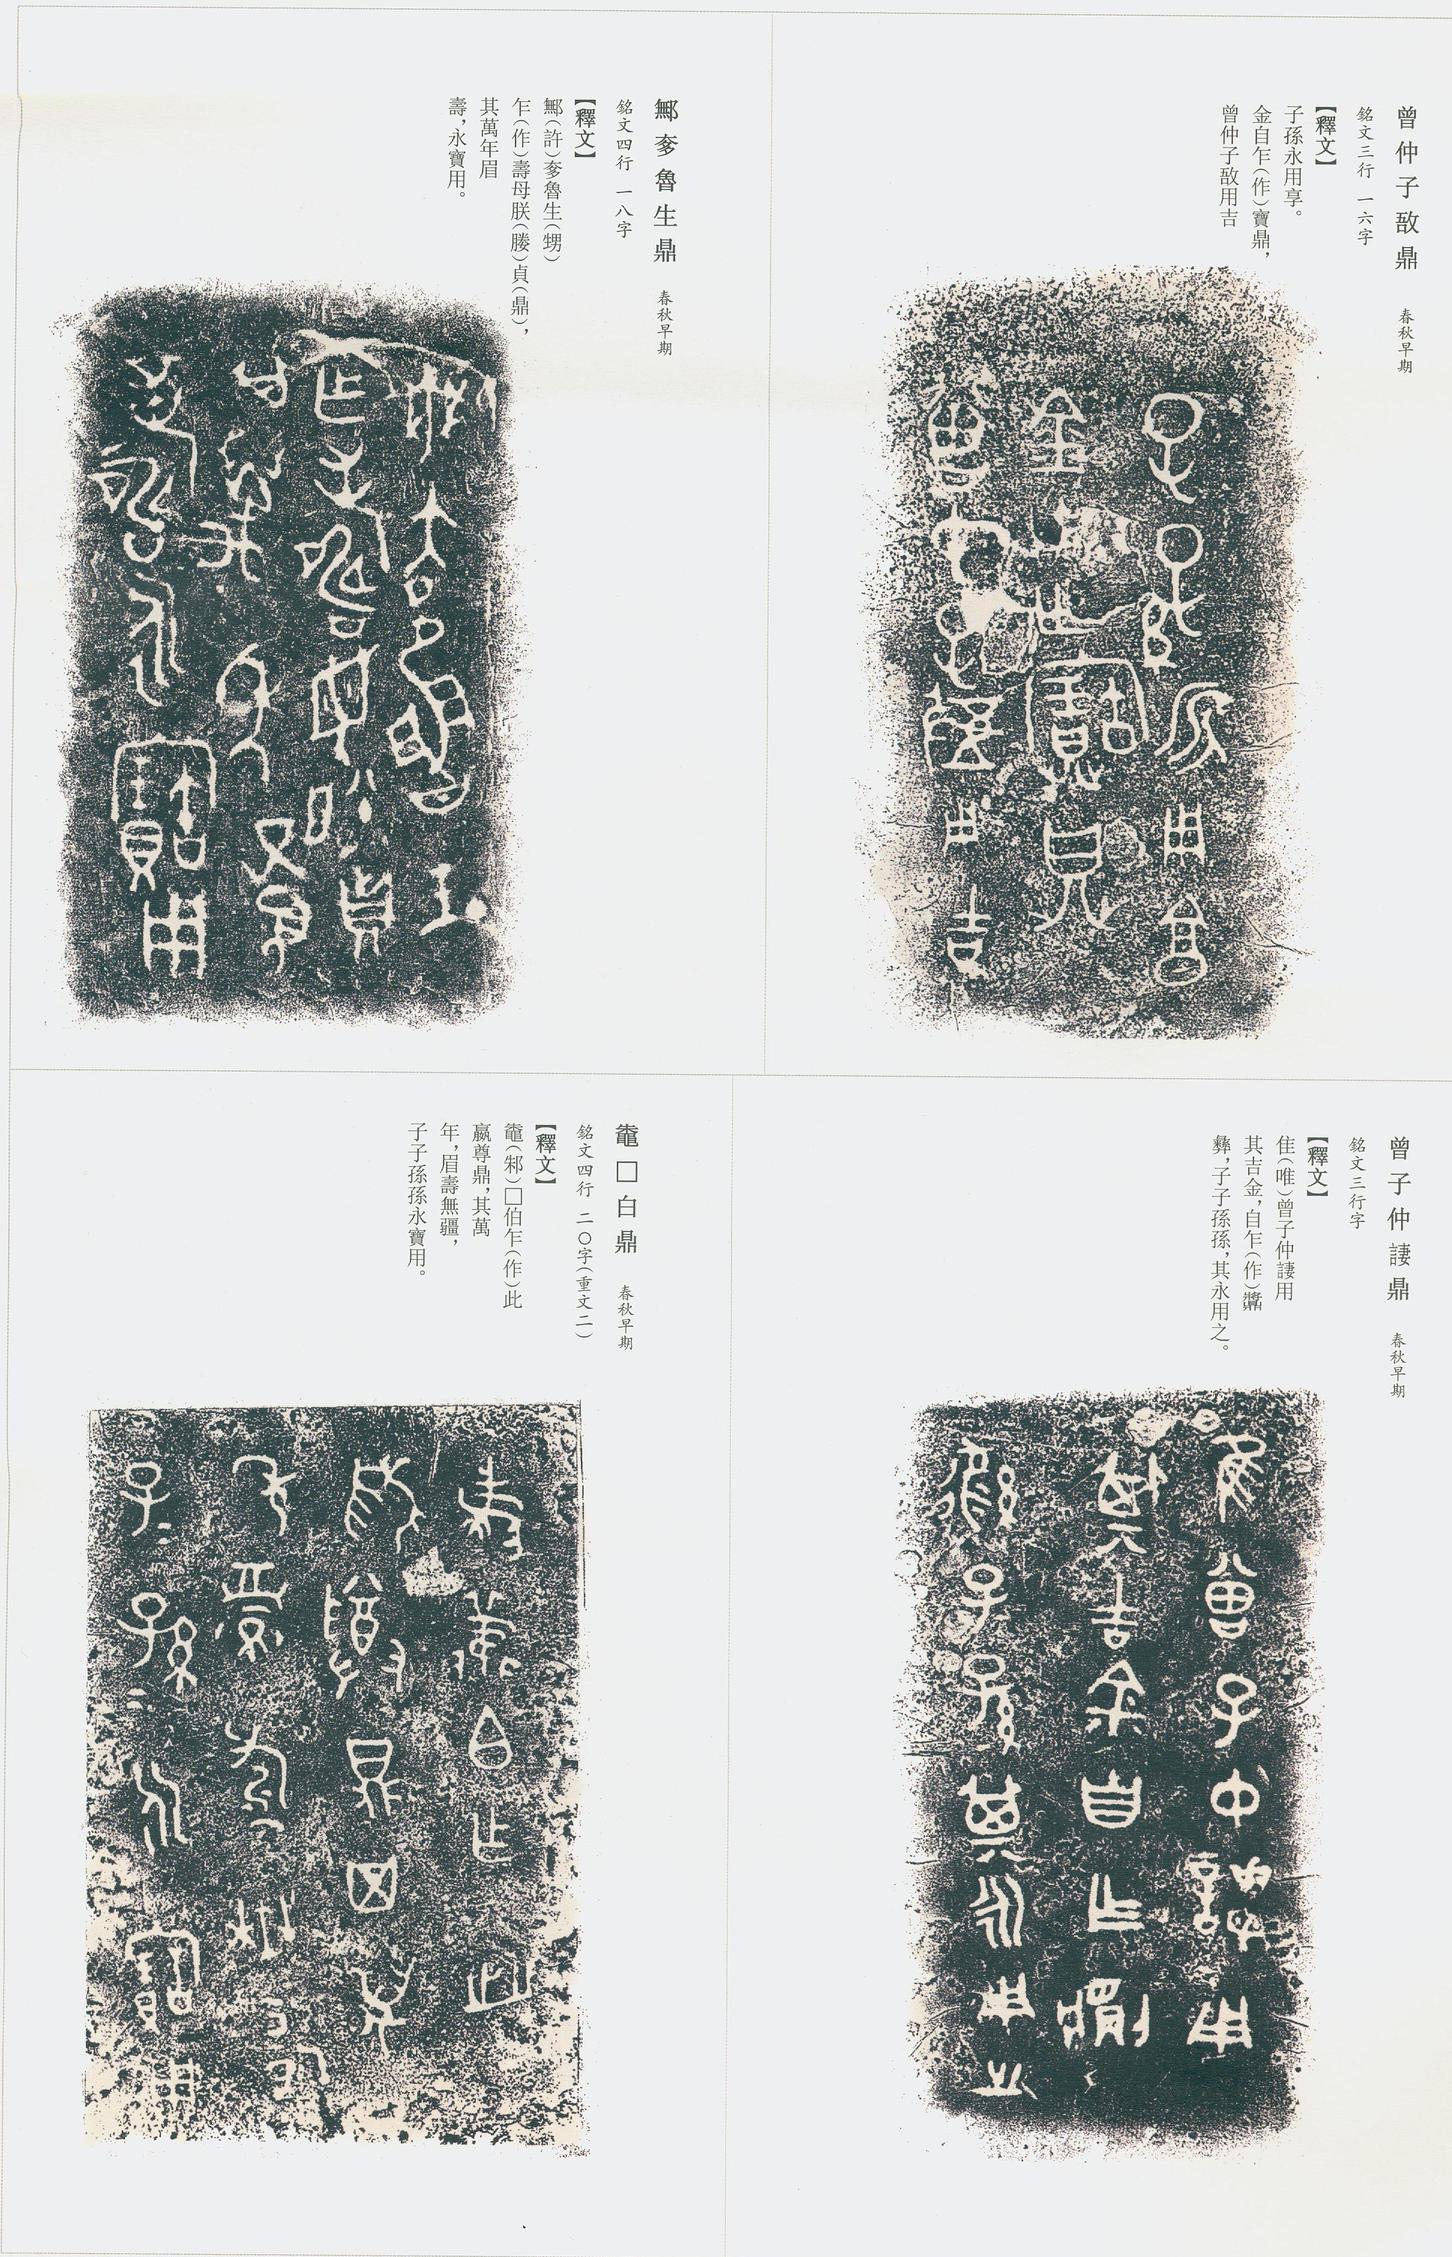 曾仲子敔鼎 春秋早期
銘文三行 一六字
【釋文】
子孫永用享。
金自乍(作)寶鼎,
曾仲子敔用吉
鄦奓魯生鼎 春秋早期
銘文四行 一八字
【釋文】
鄦(許)奓魯生(甥)
乍(作)壽母朕(媵)貞(鼎),
其萬年眉
壽,永寶用。
曾子仲諆鼎 春秋早期
銘文三行字
【釋文】
隹(唯)曾子仲諆用
其吉金,自乍(作)䵼
彝,子子孫孫,其永用之。
鼄□白鼎 春秋早期
銘文四行 二〇字(重文二)
【釋文】
鼄(邾)□伯乍(作)此
嬴尊鼎,其萬
年,眉壽無疆,
子子孫孫永寶用。